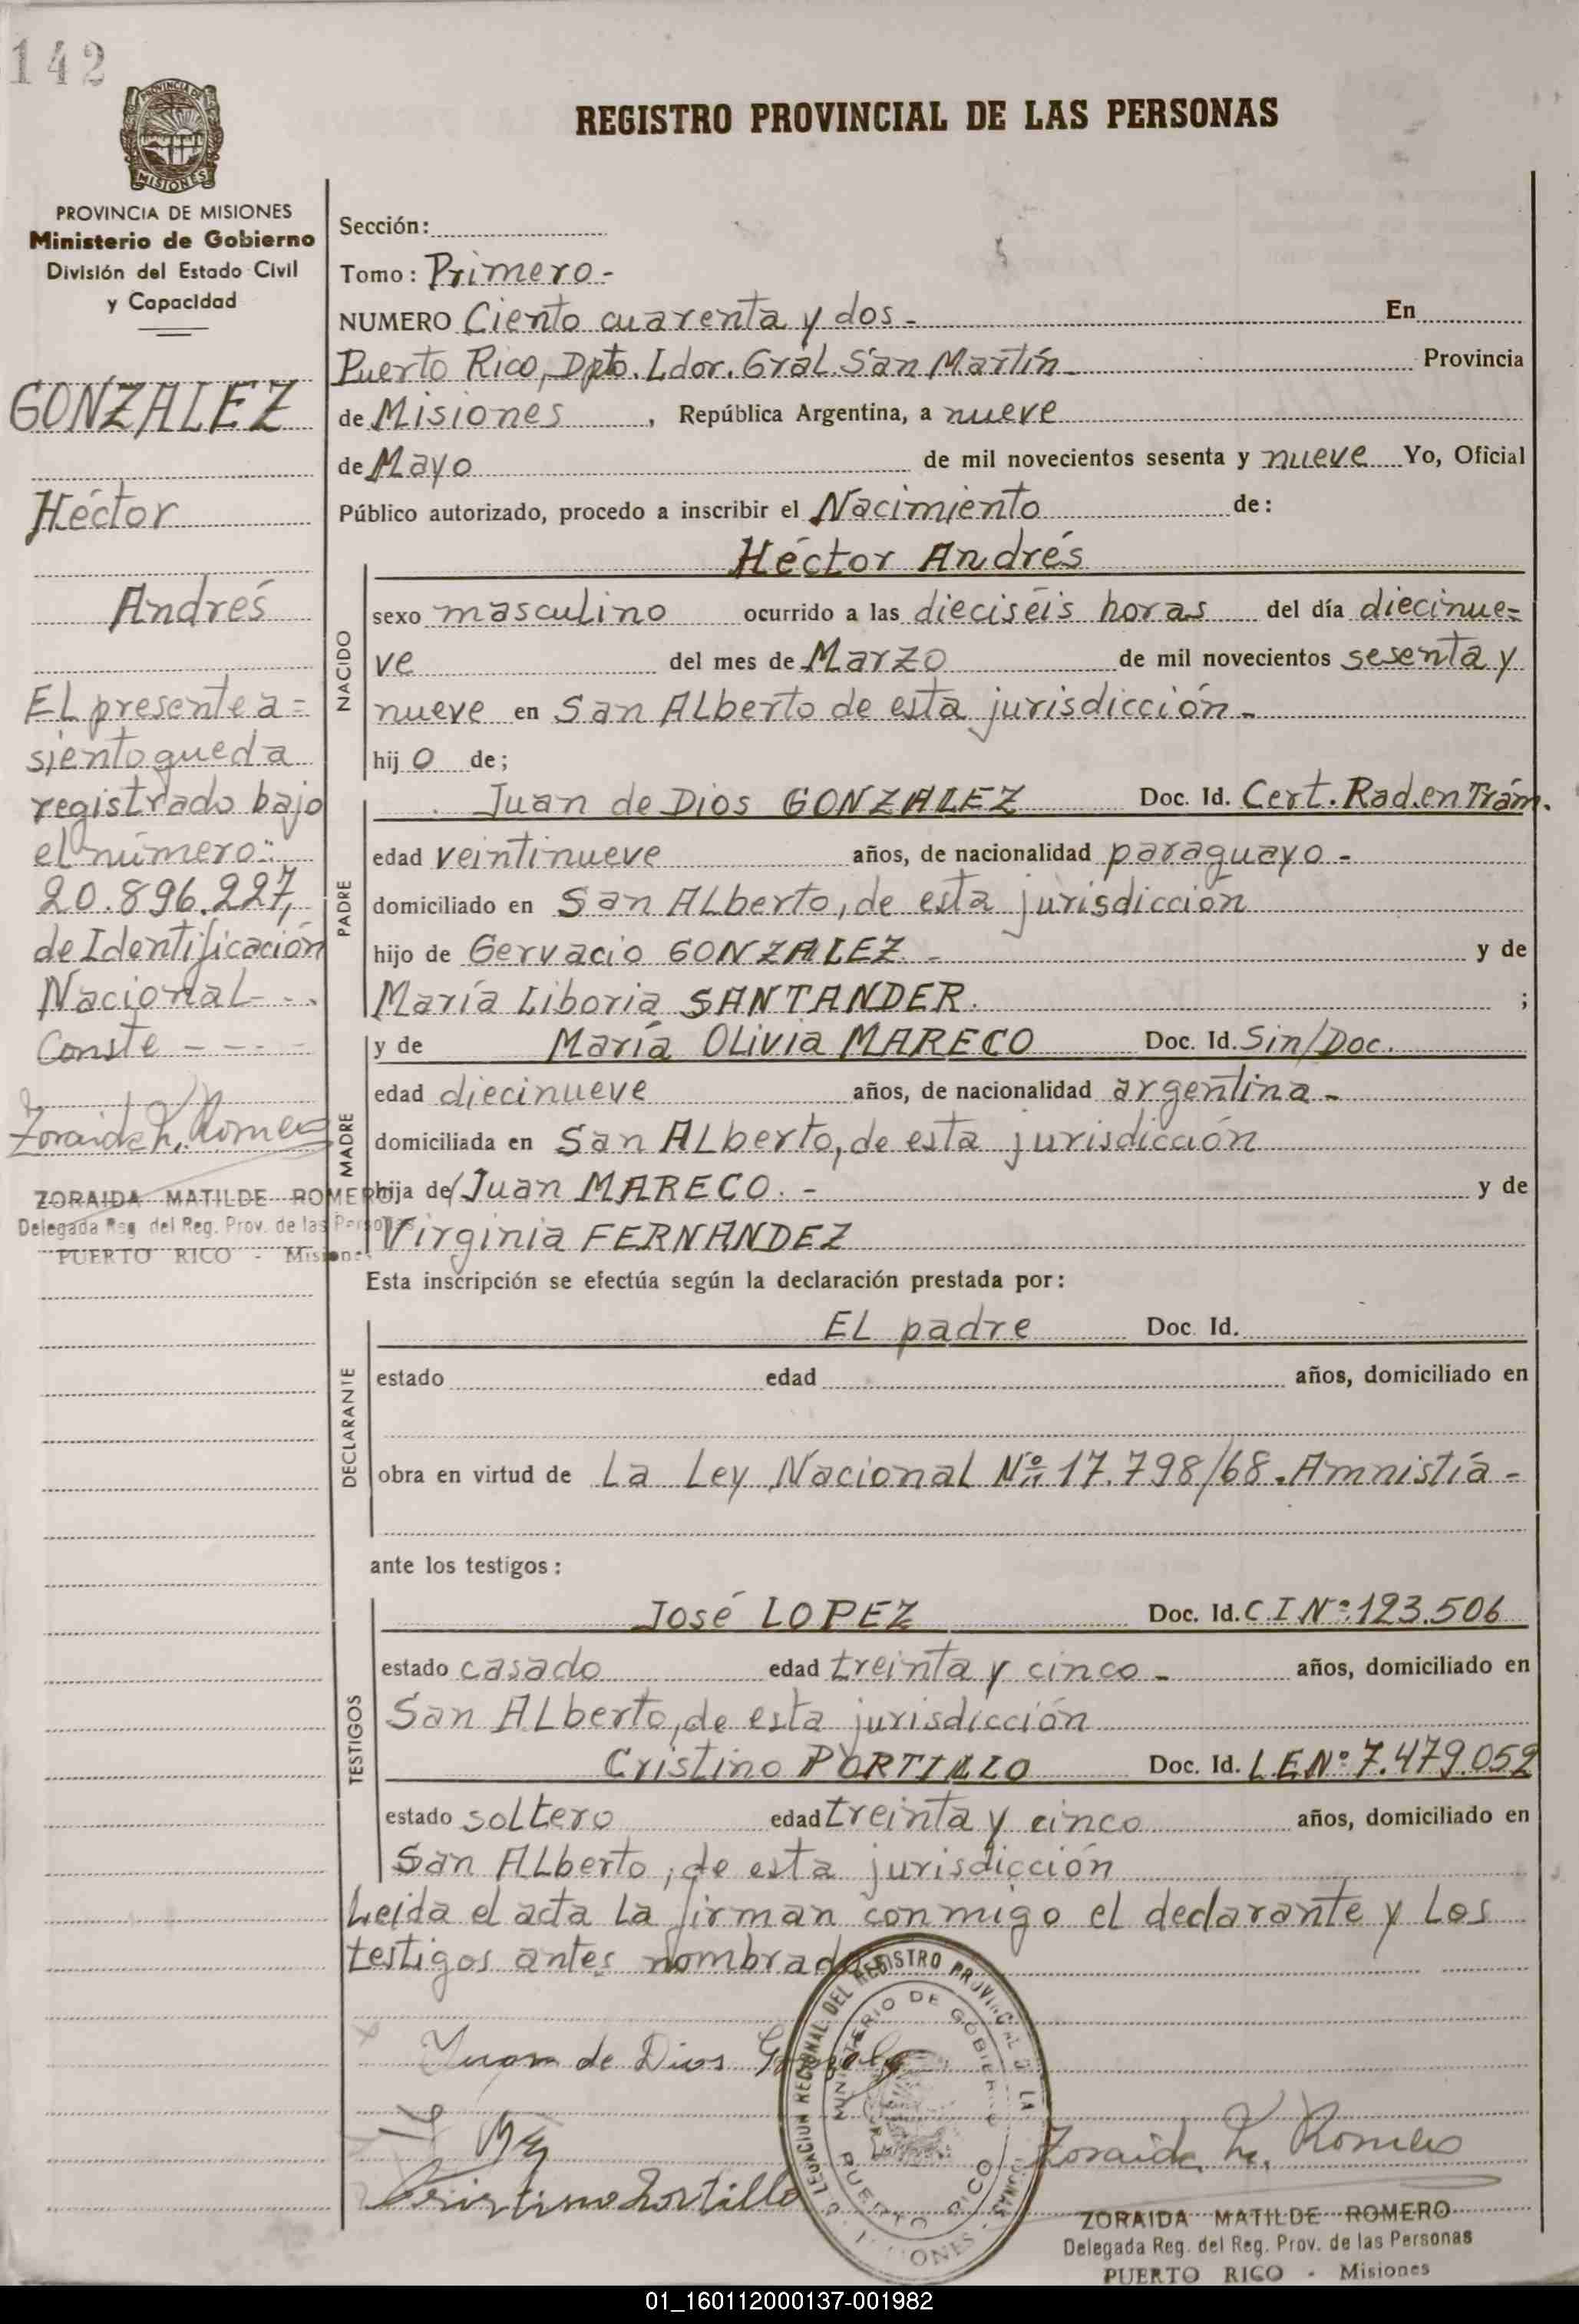 142
PROVINCIA DE MISIONES
MISIONES
PROVINCIA DE MISIONES
Ministerio de Gobierno
División del Estado Civil
y Capacidad
GONZALEZ
Héctor
Andrés
El presente a=
siento queda
registrado bajo
el número:
20.896.227,
de Identificación
Nacional - -.
Conste - - - -
Zoraida M. Romero
ZORAIDA MATILDE ROMERO
Delegada Reg. del Reg. Prov. de las Personas
PUERTO RICO - Misiones
REGISTRO PROVINCIAL DE LAS PERSONAS
Sección:
Tomo: Primero-
NUMERO Ciento cuarenta y dos- En
Puerto Rico, Dpto. Ldor. Gral. San Martín- Provincia
de Misiones, República Argentina, a nueve
de Mayo de mil novecientos sesenta y nueve Yo, Oficial
Público autorizado, procedo a inscribir el Nacimiento de:
Héctor Andrés
NACIDO
sexo masculino ocurrido a las dieciséis horas del día diecinue=
ve del mes de Marzo de mil novecientos sesenta y
nueve en San Alberto de esta jurisdicción-
hijo de;
PADRE
Juan de Dios GONZALEZ Doc. Id. Cert. Rad. en Trám.
edad veintinueve años, de nacionalidad paraguayo-
domiciliado en San Alberto, de esta jurisdicción
hijo de Gervacio GONZALEZ. - y de
María Liboria SANTANDER. ;
MADRE
y de María Olivia MARECO Doc. Id. Sin/Doc.
edad diecinueve años, de nacionalidad argentina-
domiciliada en San Alberto, de esta jurisdicción
hija de Juan MARECO. - y de
Virginia FERNANDEZ
Esta inscripción se efectúa según la declaración prestada por:
DECLARANTE
El padre Doc. Id.
estado edad años, domiciliado en
obra en virtud de La Ley Nacional Nº 17.798/68. Amnistía-
ante los testigos:
TESTIGOS
José LOPEZ Doc. Id. C I Nº: 123.506
estado casado edad treinta y cinco- años, domiciliado en
San Alberto, de esta jurisdicción
Cristino PORTILLO Doc. Id. L E Nº: 7.479.052
estado soltero edad treinta y cinco años, domiciliado en
San Alberto, de esta jurisdicción
Leida el acta la firman conmigo el declarante y los
testigos antes nombrados
Juan de Dios Gonzalez
Cristino Portillo
DELEGACION REGIONAL DEL REGISTRO PROVINCIAL DE LAS PERSONAS
MINISTERIO DE GOBIERNO
PUERTO RICO
MISIONES
Zoraida M. Romero
ZORAIDA MATILDE ROMERO
Delegada Reg. del Reg. Prov. de las Personas
PUERTO RICO - Misiones
01_160112000137-001982